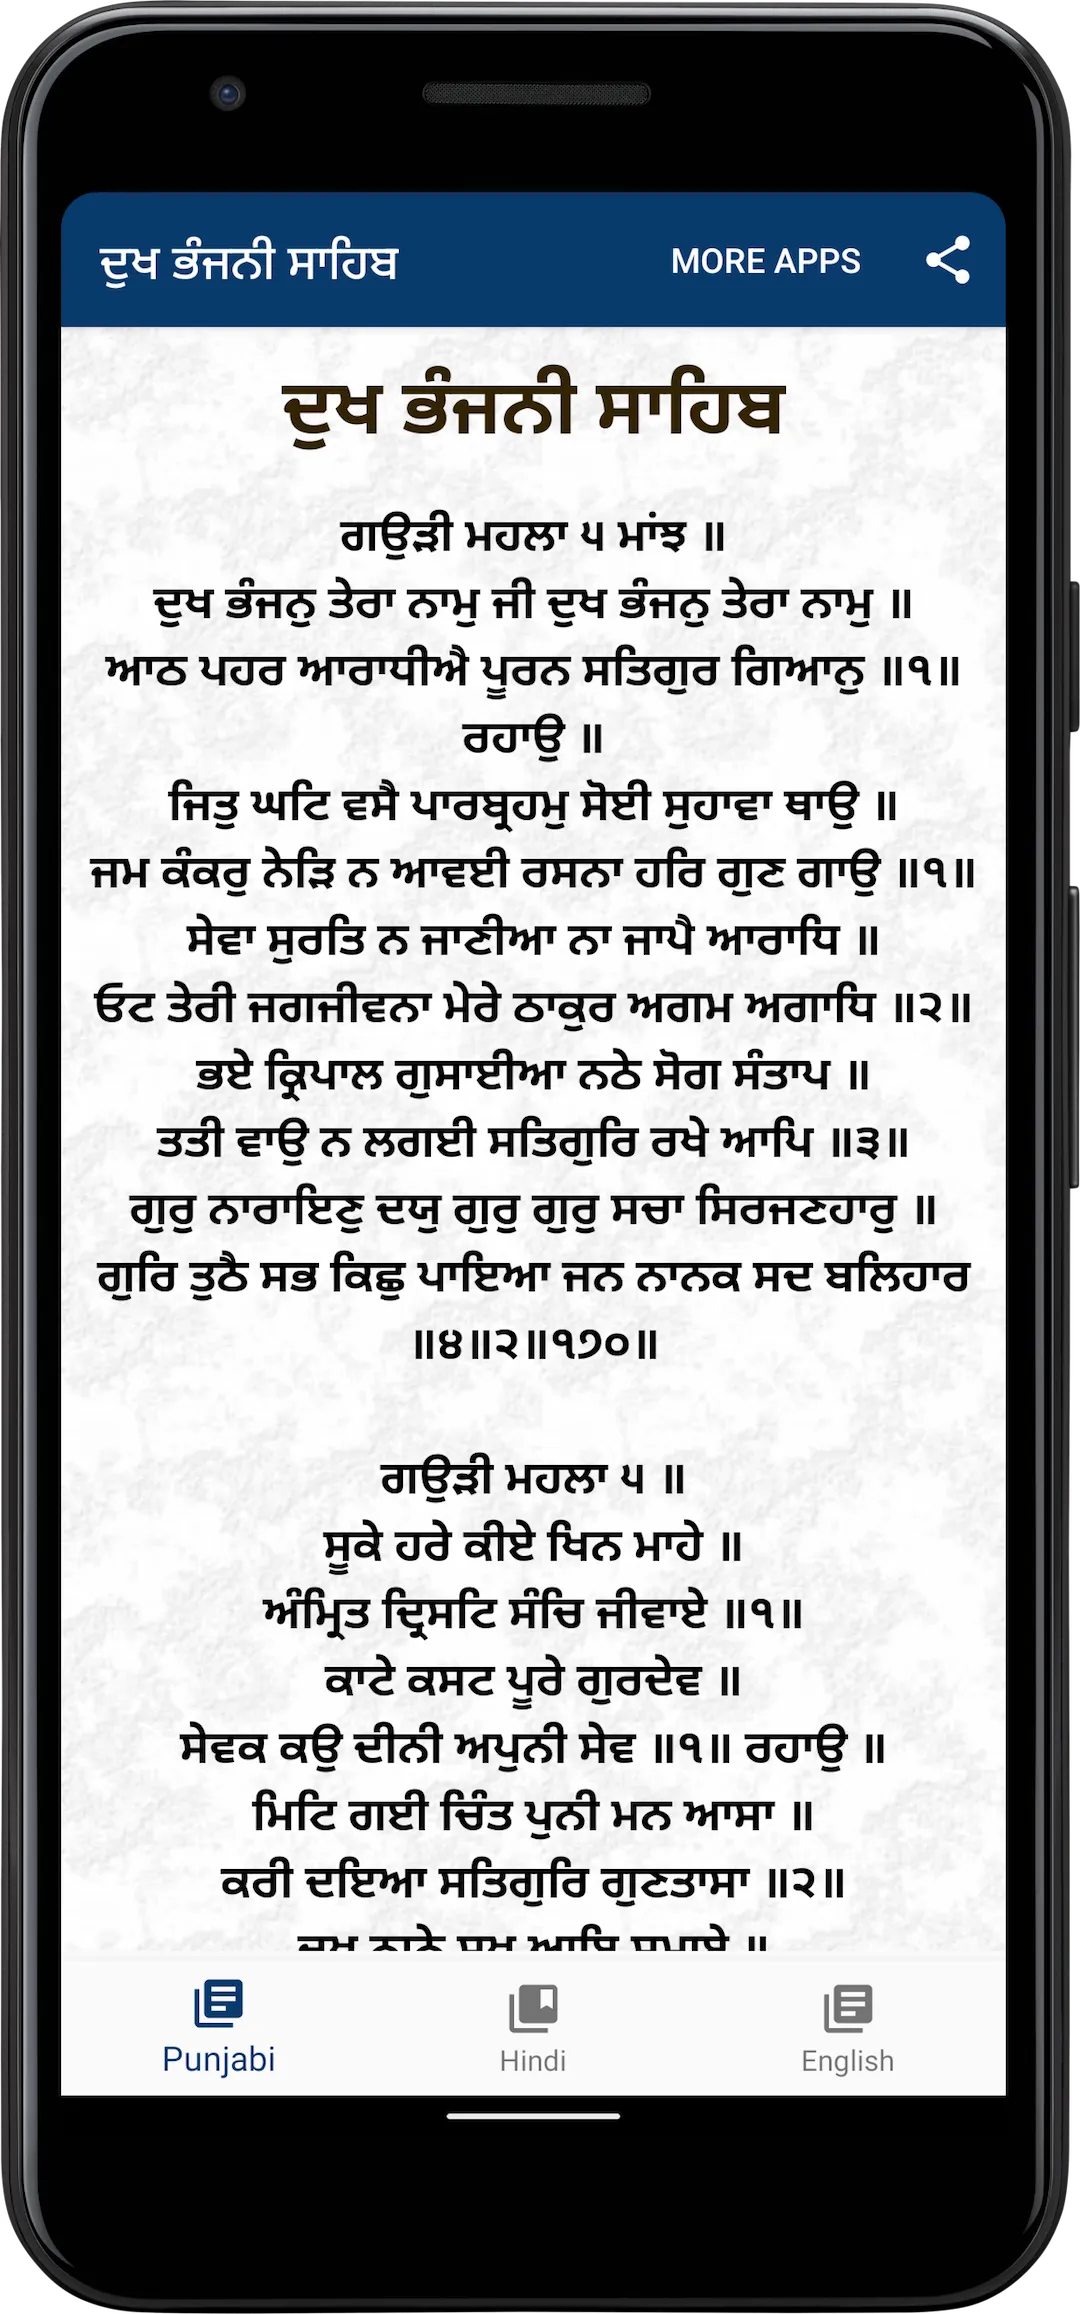 ਦੁਖ ਭੰਜਨੀ ਸਾਹਿਬ MORE APPS
ਦੁਖ ਭੰਜਨੀ ਸਾਹਿਬ
ਗਉੜੀ ਮਹਲਾ ੫ ਮਾਂਝ ॥
ਦੁਖ ਭੰਜਨੁ ਤੇਰਾ ਨਾਮੁ ਜੀ ਦੁਖ ਭੰਜਨੁ ਤੇਰਾ ਨਾਮੁ ॥
ਆਠ ਪਹਰ ਆਰਾਧੀਐ ਪੂਰਨ ਸਤਿਗੁਰ ਗਿਆਨੁ ॥੧॥
ਰਹਾਉ ॥
ਜਿਤੁ ਘਟਿ ਵਸੈ ਪਾਰਬ੍ਰਹਮੁ ਸੋਈ ਸੁਹਾਵਾ ਥਾਉ ॥
ਜਮ ਕੰਕਰੁ ਨੇੜਿ ਨ ਆਵਈ ਰਸਨਾ ਹਰਿ ਗੁਣ ਗਾਉ ॥੧॥
ਸੇਵਾ ਸੁਰਤਿ ਨ ਜਾਣੀਆ ਨਾ ਜਾਪੈ ਆਰਾਧਿ ॥
ਓਟ ਤੇਰੀ ਜਗਜੀਵਨਾ ਮੇਰੇ ਠਾਕੁਰ ਅਗਮ ਅਗਾਧਿ ॥੨॥
ਭਏ ਕ੍ਰਿਪਾਲ ਗੁਸਾਈਆ ਨਠੇ ਸੋਗ ਸੰਤਾਪ ॥
ਤਤੀ ਵਾਉ ਨ ਲਗਈ ਸਤਿਗੁਰਿ ਰਖੇ ਆਪਿ ॥੩॥
ਗੁਰੁ ਨਾਰਾਇਣੁ ਦਯੁ ਗੁਰੁ ਗੁਰੁ ਸਚਾ ਸਿਰਜਣਹਾਰੁ ॥
ਗੁਰਿ ਤੁਠੈ ਸਭ ਕਿਛੁ ਪਾਇਆ ਜਨ ਨਾਨਕ ਸਦ ਬਲਿਹਾਰ
॥੪॥੨॥੧੭੦॥
ਗਉੜੀ ਮਹਲਾ ੫ ॥
ਸੂਕੇ ਹਰੇ ਕੀਏ ਖਿਨ ਮਾਹੇ ॥
ਅੰਮ੍ਰਿਤ ਦ੍ਰਿਸਟਿ ਸੰਚਿ ਜੀਵਾਏ ॥੧॥
ਕਾਟੇ ਕਸਟ ਪੂਰੇ ਗੁਰਦੇਵ ॥
ਸੇਵਕ ਕਉ ਦੀਨੀ ਅਪੁਨੀ ਸੇਵ ॥੧॥ ਰਹਾਉ ॥
ਮਿਟਿ ਗਈ ਚਿੰਤ ਪੁਨੀ ਮਨ ਆਸਾ ॥
ਕਰੀ ਦਇਆ ਸਤਿਗੁਰਿ ਗੁਣਤਾਸਾ ॥੨॥
Punjabi Hindi English